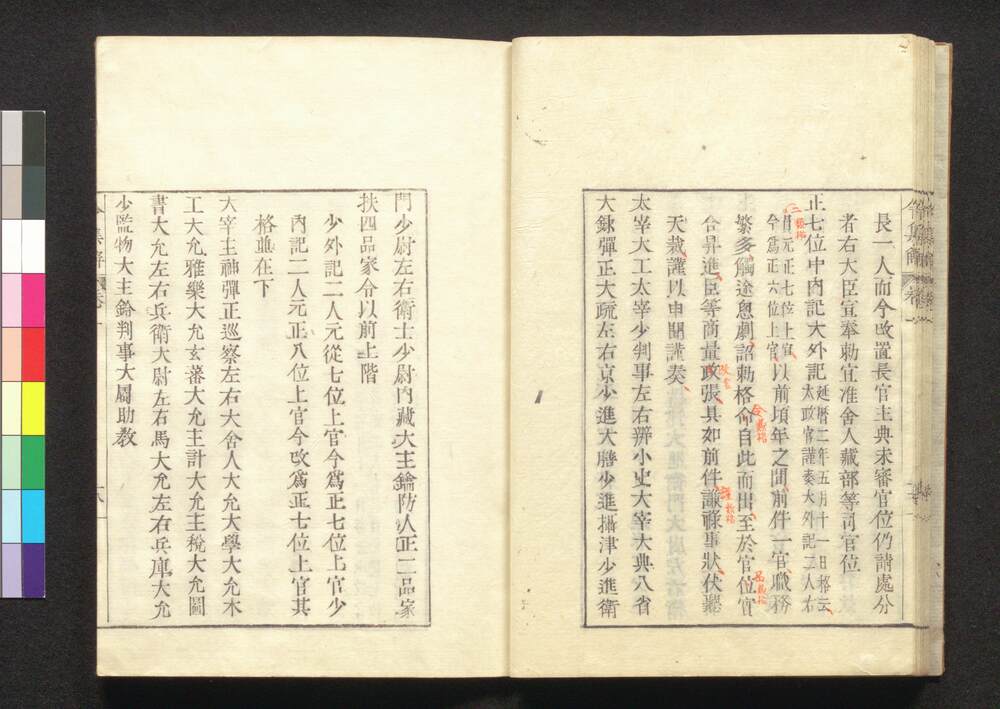 長一人而今改置長官主典未審官位仍請處分
者右大臣宣奉勅宜准舍人藏部等司官位
正七位中內記大外記延曆二年五月十一日格云
太政官謹奏大外記二人右
元正七位上官
今爲正六位上官以前頃年之間前件一官職務
繁多觸途怱劇詔勅格令自此而出至於官位實
合昇進臣等商量改張具如前件謹錄事狀伏聽
天裁謹以申聞謹奏
太宰大工太宰少判事左右辨小史大宰大典八省
大錄彈正大疏左右京少進大膳少進攝津少進衛
門少尉左右衛士少尉內藏大主鑰防人正二品家
扶四品家令以前上階
少外記二人元從七位上官今爲正七位上官少
內記二人元正八位上官今改爲正七位上官其
格並在下
大宰主神彈正巡察左右大舍人大允大學大允木
工大允雅樂大允玄蕃大允主計大允主稅大允圖
書大允左右兵衛大尉左右馬大允左右兵庫大允
少監物大主鈴判事大屬助教